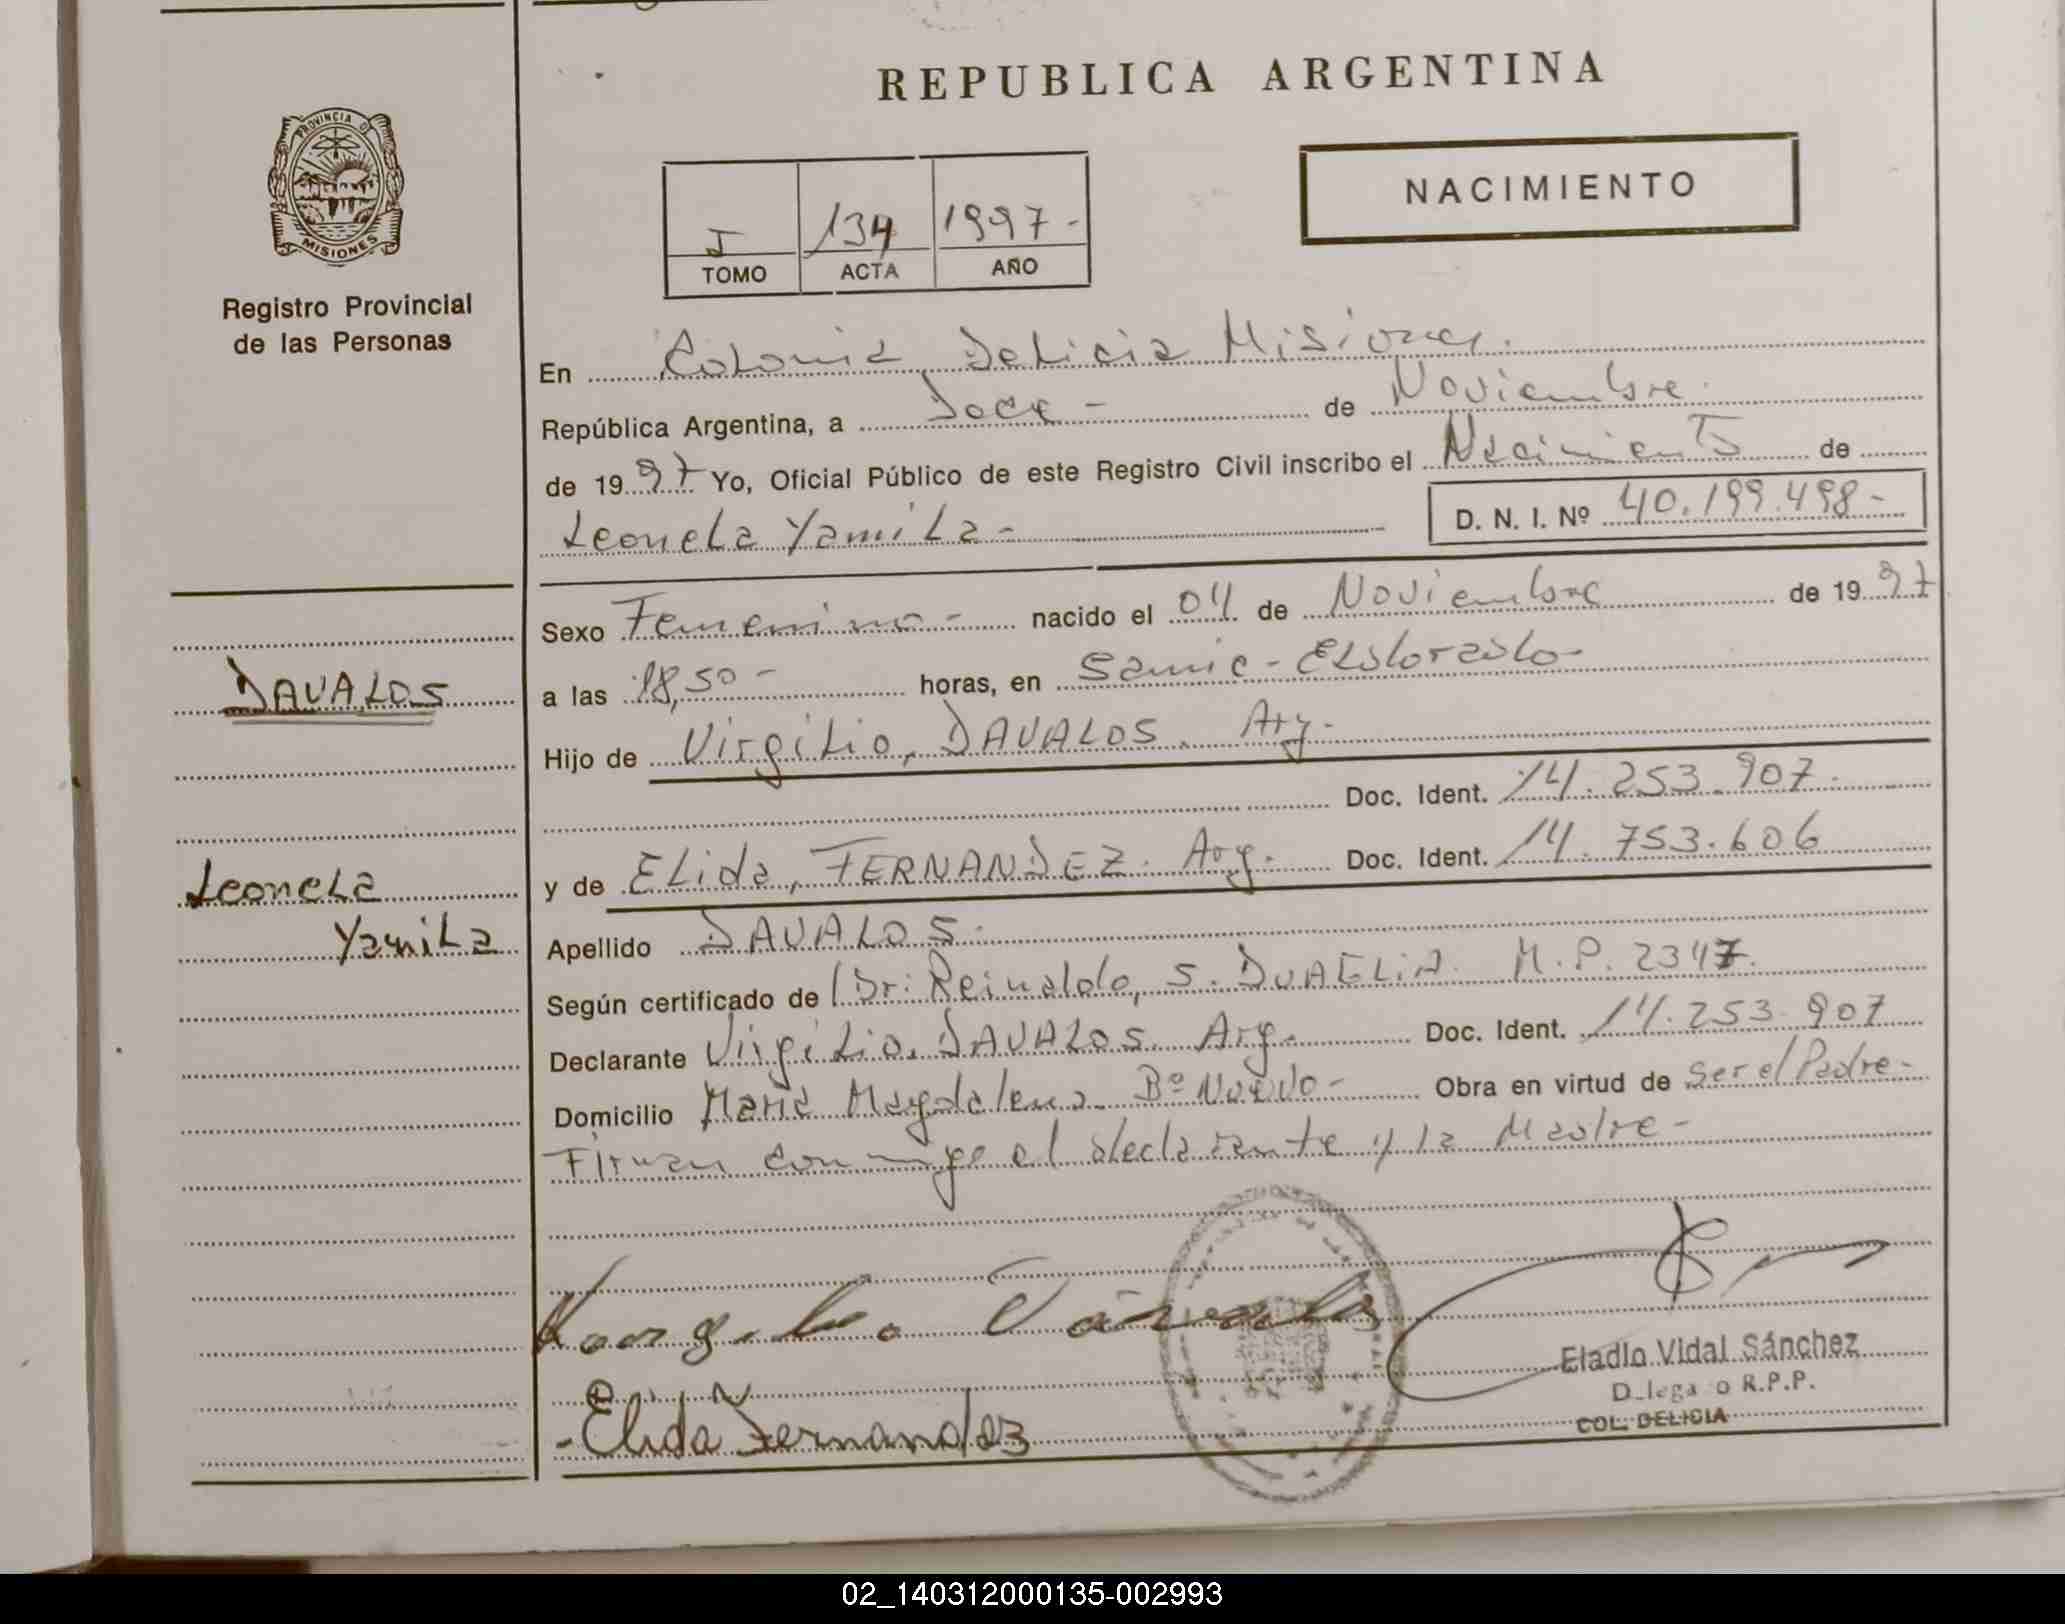 REPUBLICA ARGENTINA
PROVINCIA D
MISIONES
Registro Provincial
de las Personas
NACIMIENTO
I 134 1997-
TOMO ACTA AÑO
En Colonia Delicia Misiones.
República Argentina, a Doce - de Noviembre.
de 1997 Yo, Oficial Público de este Registro Civil inscribo el Nacimiento de
Leonela Yamila - D. N. I. Nº 40.199.498-
Sexo Femenino - nacido el 04 de Noviembre de 1997
DAVALOS
a las 18,50- horas, en Samic - Eldorado-
Hijo de Virgilio, DAVALOS. Arg.
Doc. Ident. 14.253.907.
Leonela
Yamila
y de Elida, FERNANDEZ. Arg. Doc. Ident. 14.753.606
Apellido DAVALOS.
Según certificado de Dr: Reinaldo, S. M.P. 2347.
Declarante Virgilio. DAVALOS. Arg. Doc. Ident. 14.253.907
Domicilio Maria Magdalena Bº Nuevo- Obra en virtud de ser el Padre-
Firman conmigo el declarante y la Madre-
Elida Fernandez
Eladio Vidal Sánchez
D_lega o R.P.P.
COL. DELICIA
02_140312000135-002993